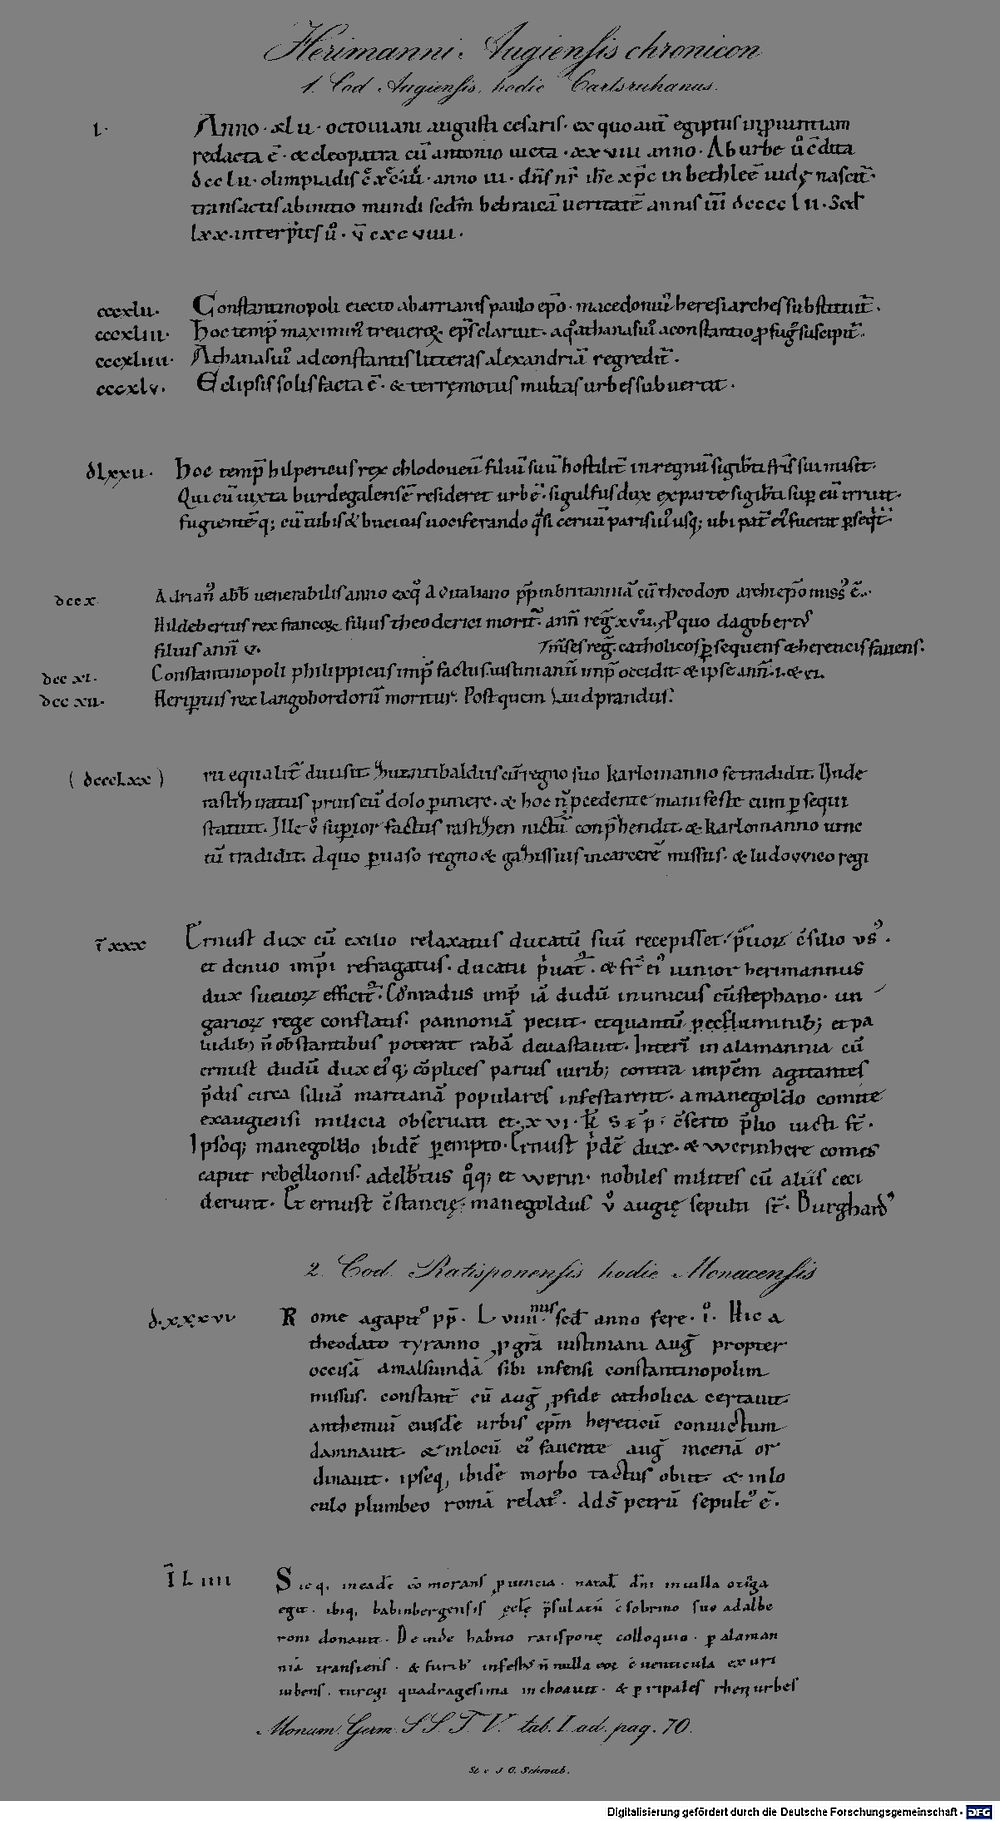 Herimanni Augiensis chronicon
1. Cod Augiensis, hodie Carlsruhanus.
1. Anno · xl ii · octouiani augusti cesaris · ex quo aut̄ egiptus in puintiam
redacta ē · & cleopatra cū antonio uicta · xx viii anno · Ab urbe u̇ c̄dita
dcc lii · olimpiadis · anno iii · dn̄s nr̄ ih̄c xp̄c in bethleē iudę nascit̄ ·
transactis ab initio mundi sedm̄ hebraicā ueritatē annis dcccc l ii · Sed
lxx · interp̄tes u̇ · v̄ cxc viiii ·
cccxlii · Constantinopoli eiecto ab arrianis paulo ep̄o · macedoniuꝰ heresiarches substituit̄ ·
cccxliii · hoc temp̄ maximinꝰ treueroꝝ ep̄s claruit · a q̊ athanasiuꝰ a constantio ꝓfugꝰ suscipit̄ ·
cccxliiii · Athanasiuꝰ ad constantis litteras alexandriā regredit̄ ·
cccxlv. Eclipsis solis facta ē · & terręmotus multas urbes subuertit ·
dlxxii · hoc temp̄ hilpericus rex chlodoueū filiū suū hostilit̄ in regnū sigib̄ti fr̄is sui misit ·
Qui cū iuxta burdegalensē resideret urbē · sigulfus dux ex parte sigib̄ti sup̄ eū irruit ·
fugientēq; cū tubis & bucinis uociferando q̊si ceruū parisiuꝰ usq; ubi pat̄ eiꝰ fuerat ꝑseq̄t̄ ·
dccx. Adrianꝰ abb̄ uenerabilis anno ex q̊ a uitaliano pp̄ in britanniā cū theodoro archiep̄o missꝰ ē ·
Hildebertus rex francoꝝ filius theoderici morit̄ · ann̄ reḡ xvii · Post quo dagobertꝰ
filius ann̄ v. reḡ · catholicos ꝑsequens & hereticis fauens ·
dcc xi. Constantinopoli philippicus imp̄ factus iustinianū imp̄ occidit & ipse ann̄ · i · & vi ·
dcc xii. Heriꝑtus rex langobordorū moritur · Post quem Liudprandus ·
( dcccLxx ) rii equalit̄ diuisit Zuentibaldus cū regno suo karlomanno se tradidit · Unde
rastih iratus prius cū dolo ꝑimere · & hoc n̄ pcedente manifeste eum ꝑ sequi
statuit · Ille u̇ superior factus rastihen uictū conp̄hendit · & karlomanno uinc
tū tradidit · A quo ꝑuaso regno & gahissuis in carcerē missus · & ludovvico regi
ī xxx Ernust dux cū exilio relaxatus ducatū suū recepisset · p̄uoꝝ c̄silio vsꝰ ·
et denuo imp̄i refragatus · ducatu p̄uat̄ · & fr̄ eiꝰ iunior herimannus
dux sueuoꝝ efficit̄ · Conradus imp̄ iā dudū inimicus cū stephano · un
garioꝝ rege conflatis · pannoniā peciit · et quantū p̄ fluminib; et pa
ludib; n̄ obstantibus poterat rabā deuastauit · Interī in alamannia cū
ernust dudū dux eiꝰq; cōplices parius iurib; contra imp̄em agitantes
p̄dis circa siluā martianā populares infestarent · a manegoldo comite
ex augiensi milicia obseruati et · xvi · k̄ · Sep̄ · c̄serto p̄lio uicti st̄ ·
Ipsoq; manegoldo ibidē ꝑempto · Ernust p̄dē dux · & werinhere comes
caput rebellionis · adelb̄tus q̊q; et werin · nobiles milites cū aliis ceci
derunt · Et ernust c̄stancię · manegoldus u̇ augię sepulti st̄ · Burghardꝰ
2. Cod. Ratisponensis hodie Monacensis
d.xxxvi Rome agapitꝰ pp̄ · L viiii nus sed anno fere · i̊ · Hic a
theodato tyranno ꝓ gr̄a iustiniani auḡ propter
occisā amalsuindā sibi infensi constantinopolim
missus · constant̄ cū auḡ ꝓ fide catholica certauit ·
anthemiū eiusdē urbis ep̄m hereticū conuictum
damnauit · & in locū eiꝰ fauente auḡ mcenā or
dinauit · ipseq, ibidē morbo tactus obiit · & in lo
culo plumbeo romā relatꝰ · Ad s̄ petrū sepultꝰ ē ·
ī L iiii Sicq, in eadē cō morans ꝓuincia · natal̄ dn̄i in uilla otinga
egit · ibiq, babinbergensis ęcl̄ę p̄sulatū c̄sobrino suo adalbe
roni donauit · Deinde habito ratisponę colloquio · ꝑ alaman
niā transiens · & furib; infestꝰ n̄ nulla eoꝝ c̄uenticula exuri
iubens · turegi quadragesima inchoauit · & p̄ripales rheni urbes
Monum. Germ. SS. T. V. tab. I ad. pag. 70.
St v J G. Schwab.
Digitalisierung gefördert durch die Deutsche Forschungsgemeinschaft - DFG